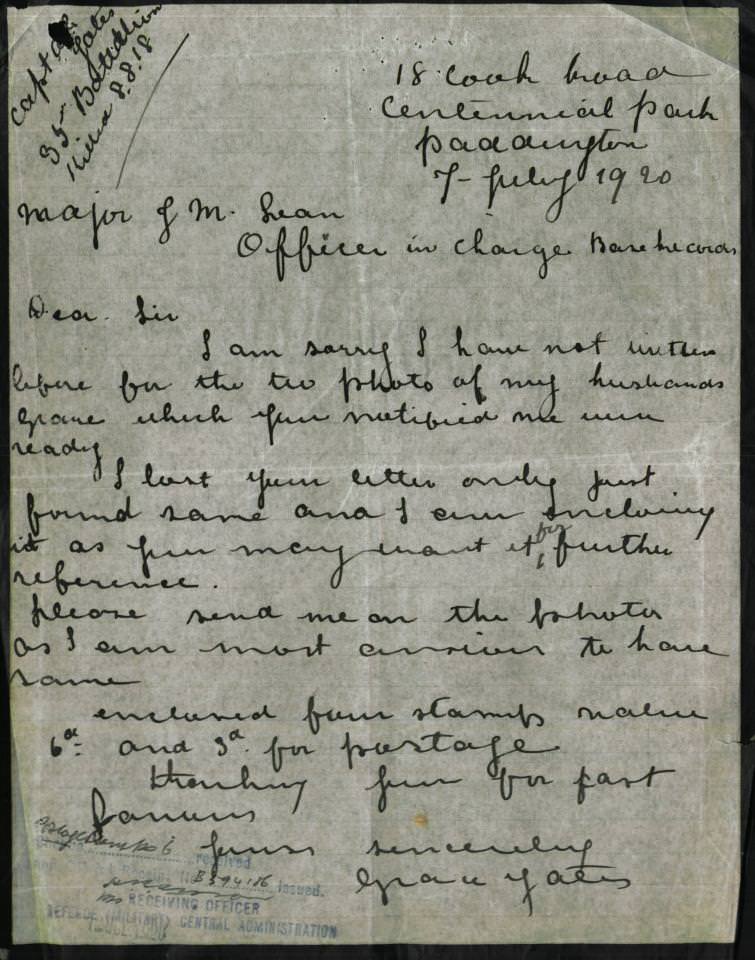 Capt
Yates
35th Battalion
Killed 8.8.18
18 Cook Road
Centennial Park
Paddington
7 July 1920
Major J M. Lean
Officer in Charge Base Records
Dear Sir
I am sorry I have not written
before for the two photo of my husbands
grave which you notified me were
ready
I lost your letter only just
found same and I am enclosing
it as you may want it for further
reference.
please send me on the photos
as I am most anxious to have
same
enclosed four stamps value
6d and 3d for postage
thanking you for past
favours
yours sincerely
Grace Yates
received
issued.
RECEIVING OFFICER
DEFENCE (MILITARY) CENTRAL ADMINISTRATION